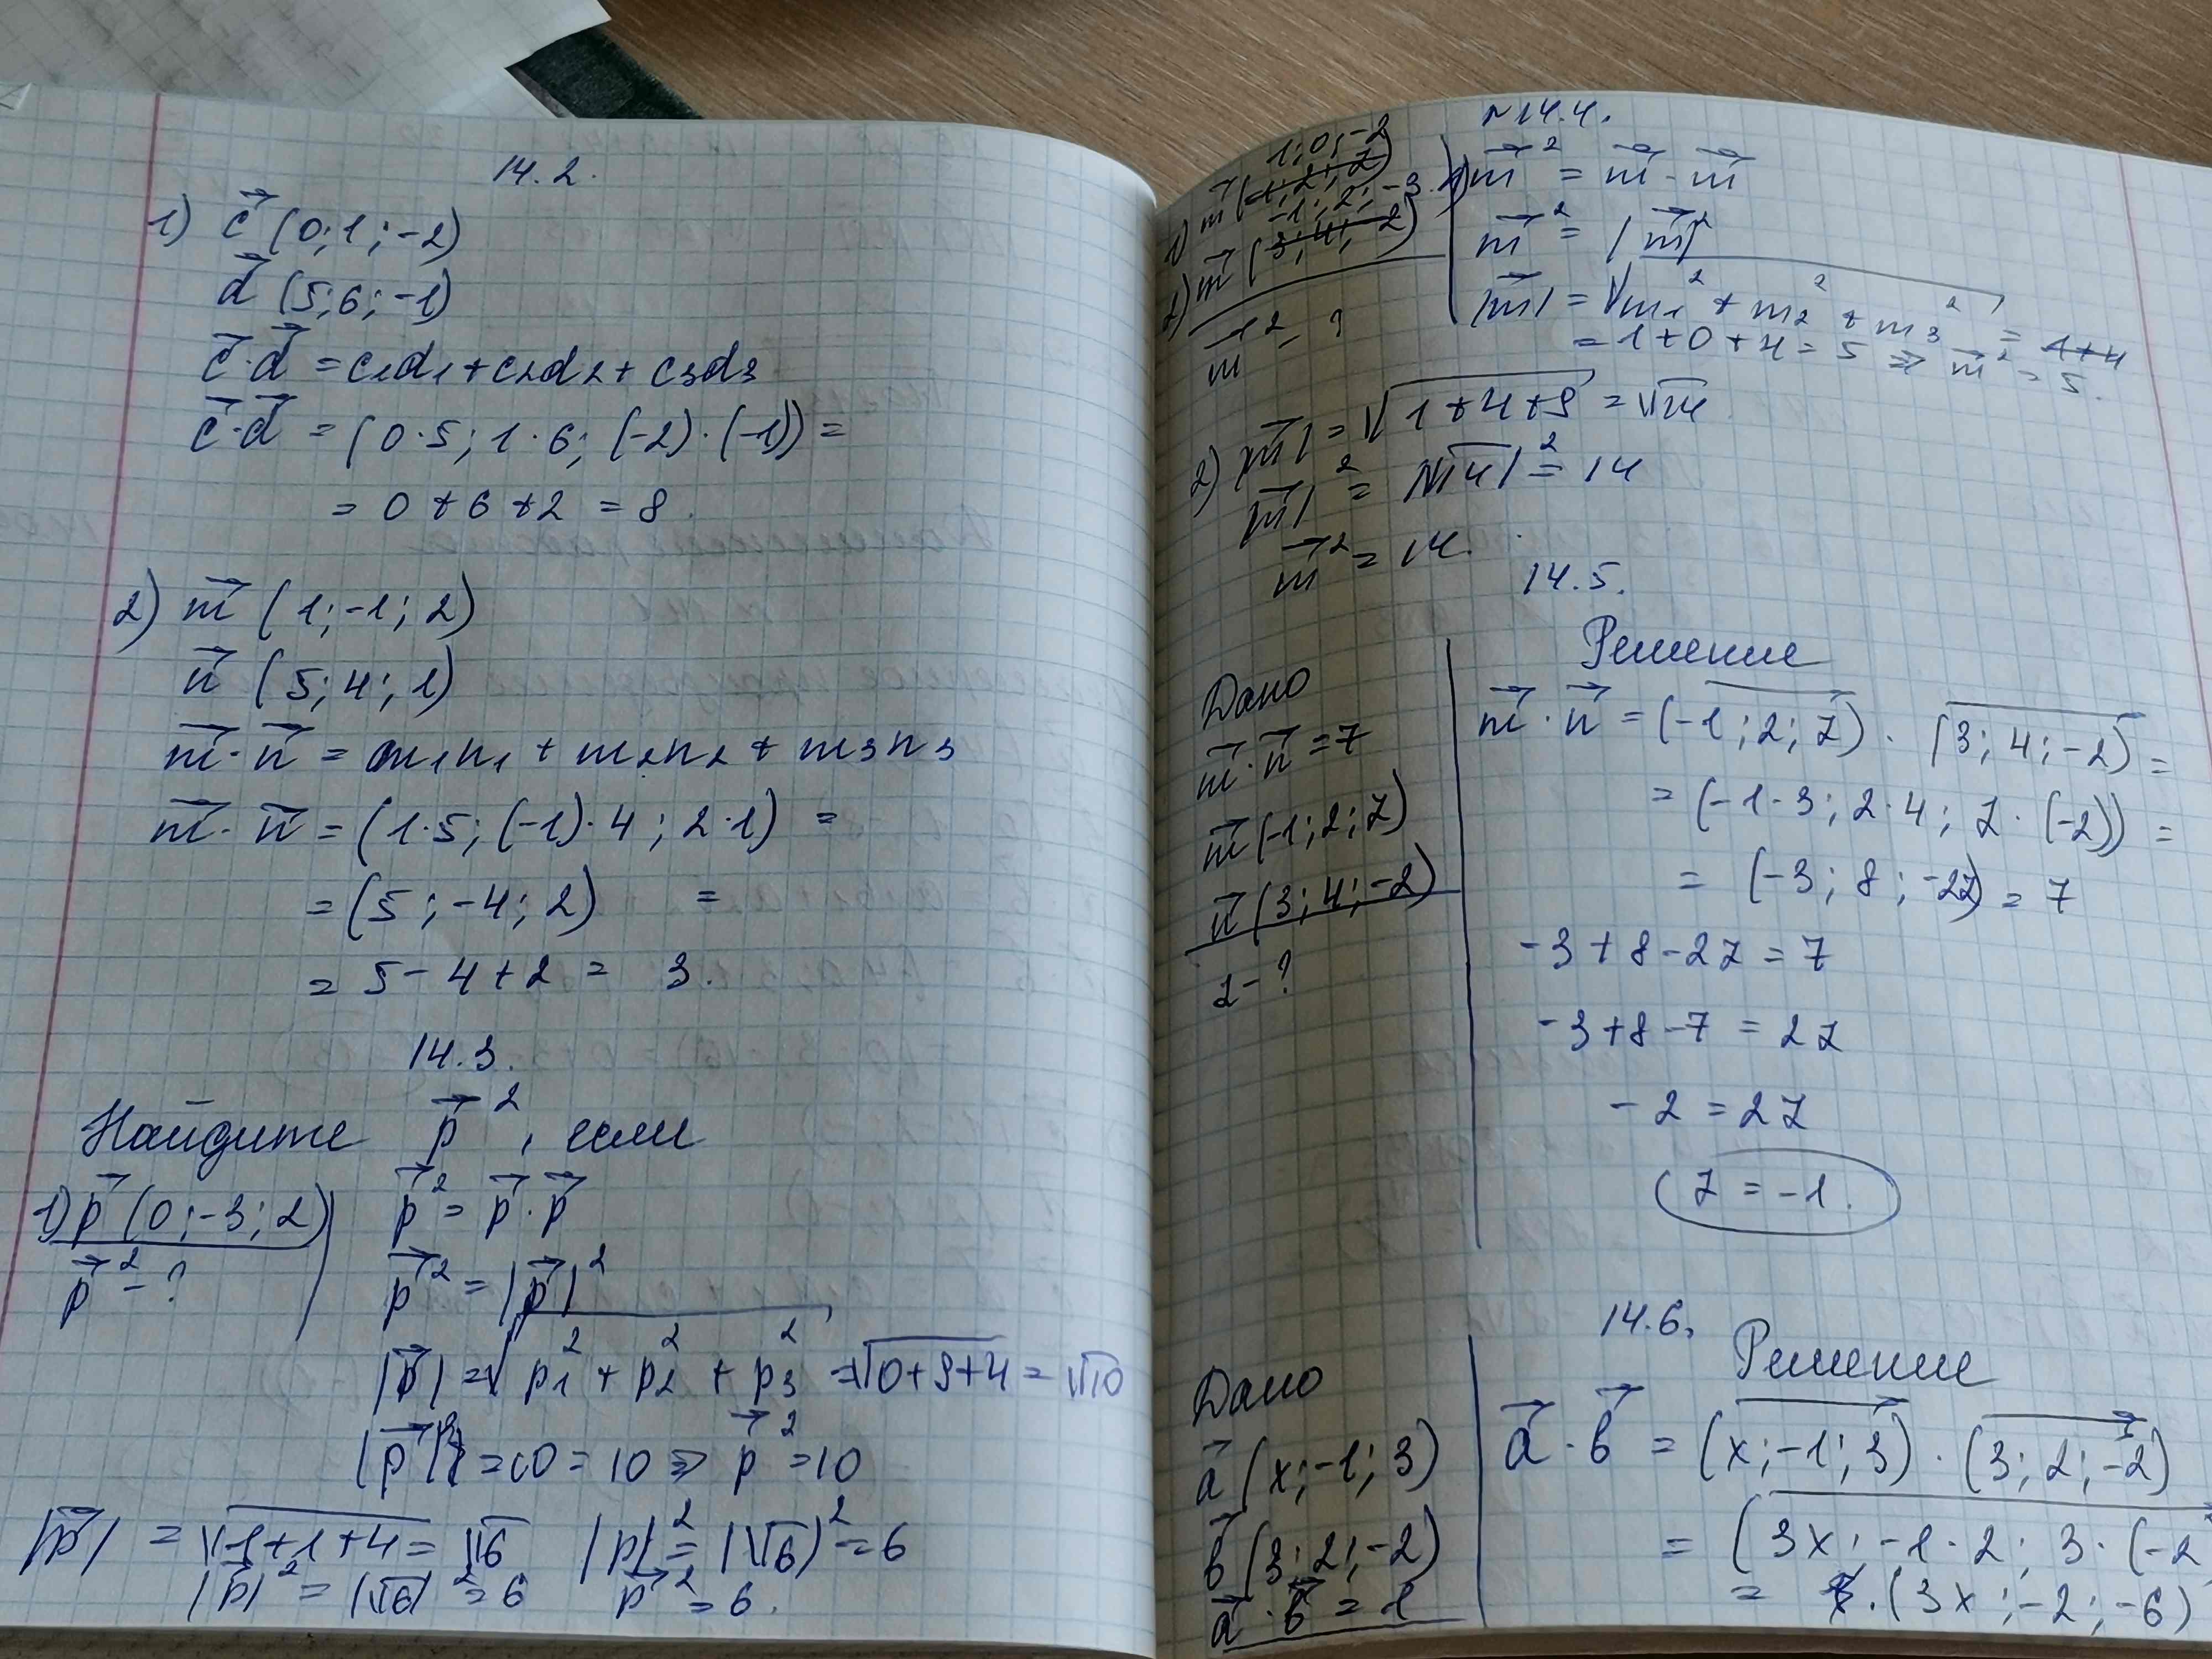 14.2.
1) c⃗ (0; 1; -2)
d⃗ (5; 6; -1)
c⃗·d⃗ = c₁d₁ + c₂d₂ + c₃d₃
c⃗·d⃗ = (0·5; 1·6; (-2)·(-1)) =
= 0 + 6 + 2 = 8.
2) m⃗ (1; -1; 2)
n⃗ (5; 4; 1)
m⃗·n⃗ = m₁n₁ + m₂n₂ + m₃n₃
m⃗·n⃗ = (1·5; (-1)·4; 2·1) =
= (5; -4; 2) =
= 5 - 4 + 2 = 3.
14.3.
Найдите p⃗², если
1) p⃗ (0; -3; 2)
p⃗² - ?
p⃗² = p⃗·p⃗
p⃗² = |p⃗|²
|p⃗| = √(p₁² + p₂² + p₃²) = √(0+9+4) = √10
|p⃗|² = 10 = 10 ⇒ p⃗² = 10
|p⃗| = √(1+1+4) = √6 |p|² = (√6)² = 6
|p⃗|² = (√6)² = 6 p⃗² = 6.
N14.4.
1; 0; -2
1) m⃗ (-1; 2; z)
-1; 2; -3.
2) m⃗ (3; 4; -2)
m⃗² - ?
1) m⃗² = m⃗·m⃗
m⃗² = |m⃗|²
|m⃗| = √(m₁² + m₂² + m₃²) = 1+4
= 1 + 0 + 4 = 5 ⇒ m⃗² = 5.
2) |m⃗| = √(1+4+9) = √14
|m⃗|² = |√14|² = 14
m⃗² = 14.
14.5.
Дано
m⃗·n⃗ = 7
m⃗ (-1; 2; z)
n⃗ (3; 4; -2)
z - ?
Решение
m⃗·n⃗ = (-1; 2; z) · (3; 4; -2) =
= (-1·3; 2·4; z·(-2)) =
= (-3; 8; -2z) = 7
-3 + 8 - 2z = 7
-3 + 8 - 7 = 2z
-2 = 2z
z = -1.
14.6.
Дано
a⃗ (x; -1; 3)
b⃗ (3; 2; -2)
a⃗·b⃗ = 1
Решение
a⃗·b⃗ = (x; -1; 3) · (3; 2; -2)
= (3x; -1·2; 3·(-2
= (3x; -2; -6)